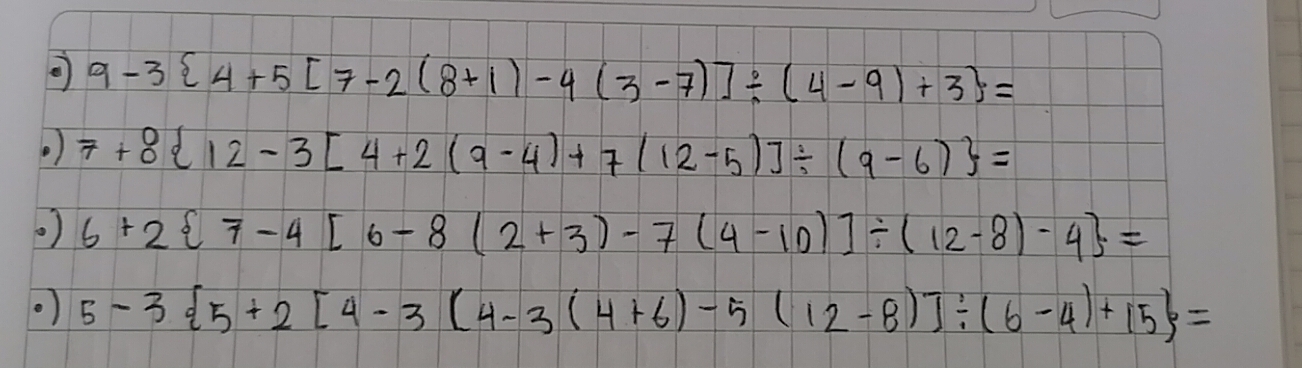 •) 9 - 3 { 4 + 5 [ 7 - 2 ( 8 + 1 ) - 4 ( 3 - 7 ) ] ÷ ( 4 - 9 ) + 3 } =
•) 7 + 8 { 12 - 3 [ 4 + 2 ( 9 - 4 ) + 7 ( 12 - 5 ) ] ÷ ( 9 - 6 ) } =
•) 6 + 2 { 7 - 4 [ 6 - 8 ( 2 + 3 ) - 7 ( 4 - 10 ) ] ÷ ( 12 - 8 ) - 4 } =
•) 5 - 3 { 5 + 2 [ 4 - 3 ( 4 - 3 ( 4 + 6 ) - 5 ( 12 - 8 ) ] ÷ ( 6 - 4 ) + 15 } =